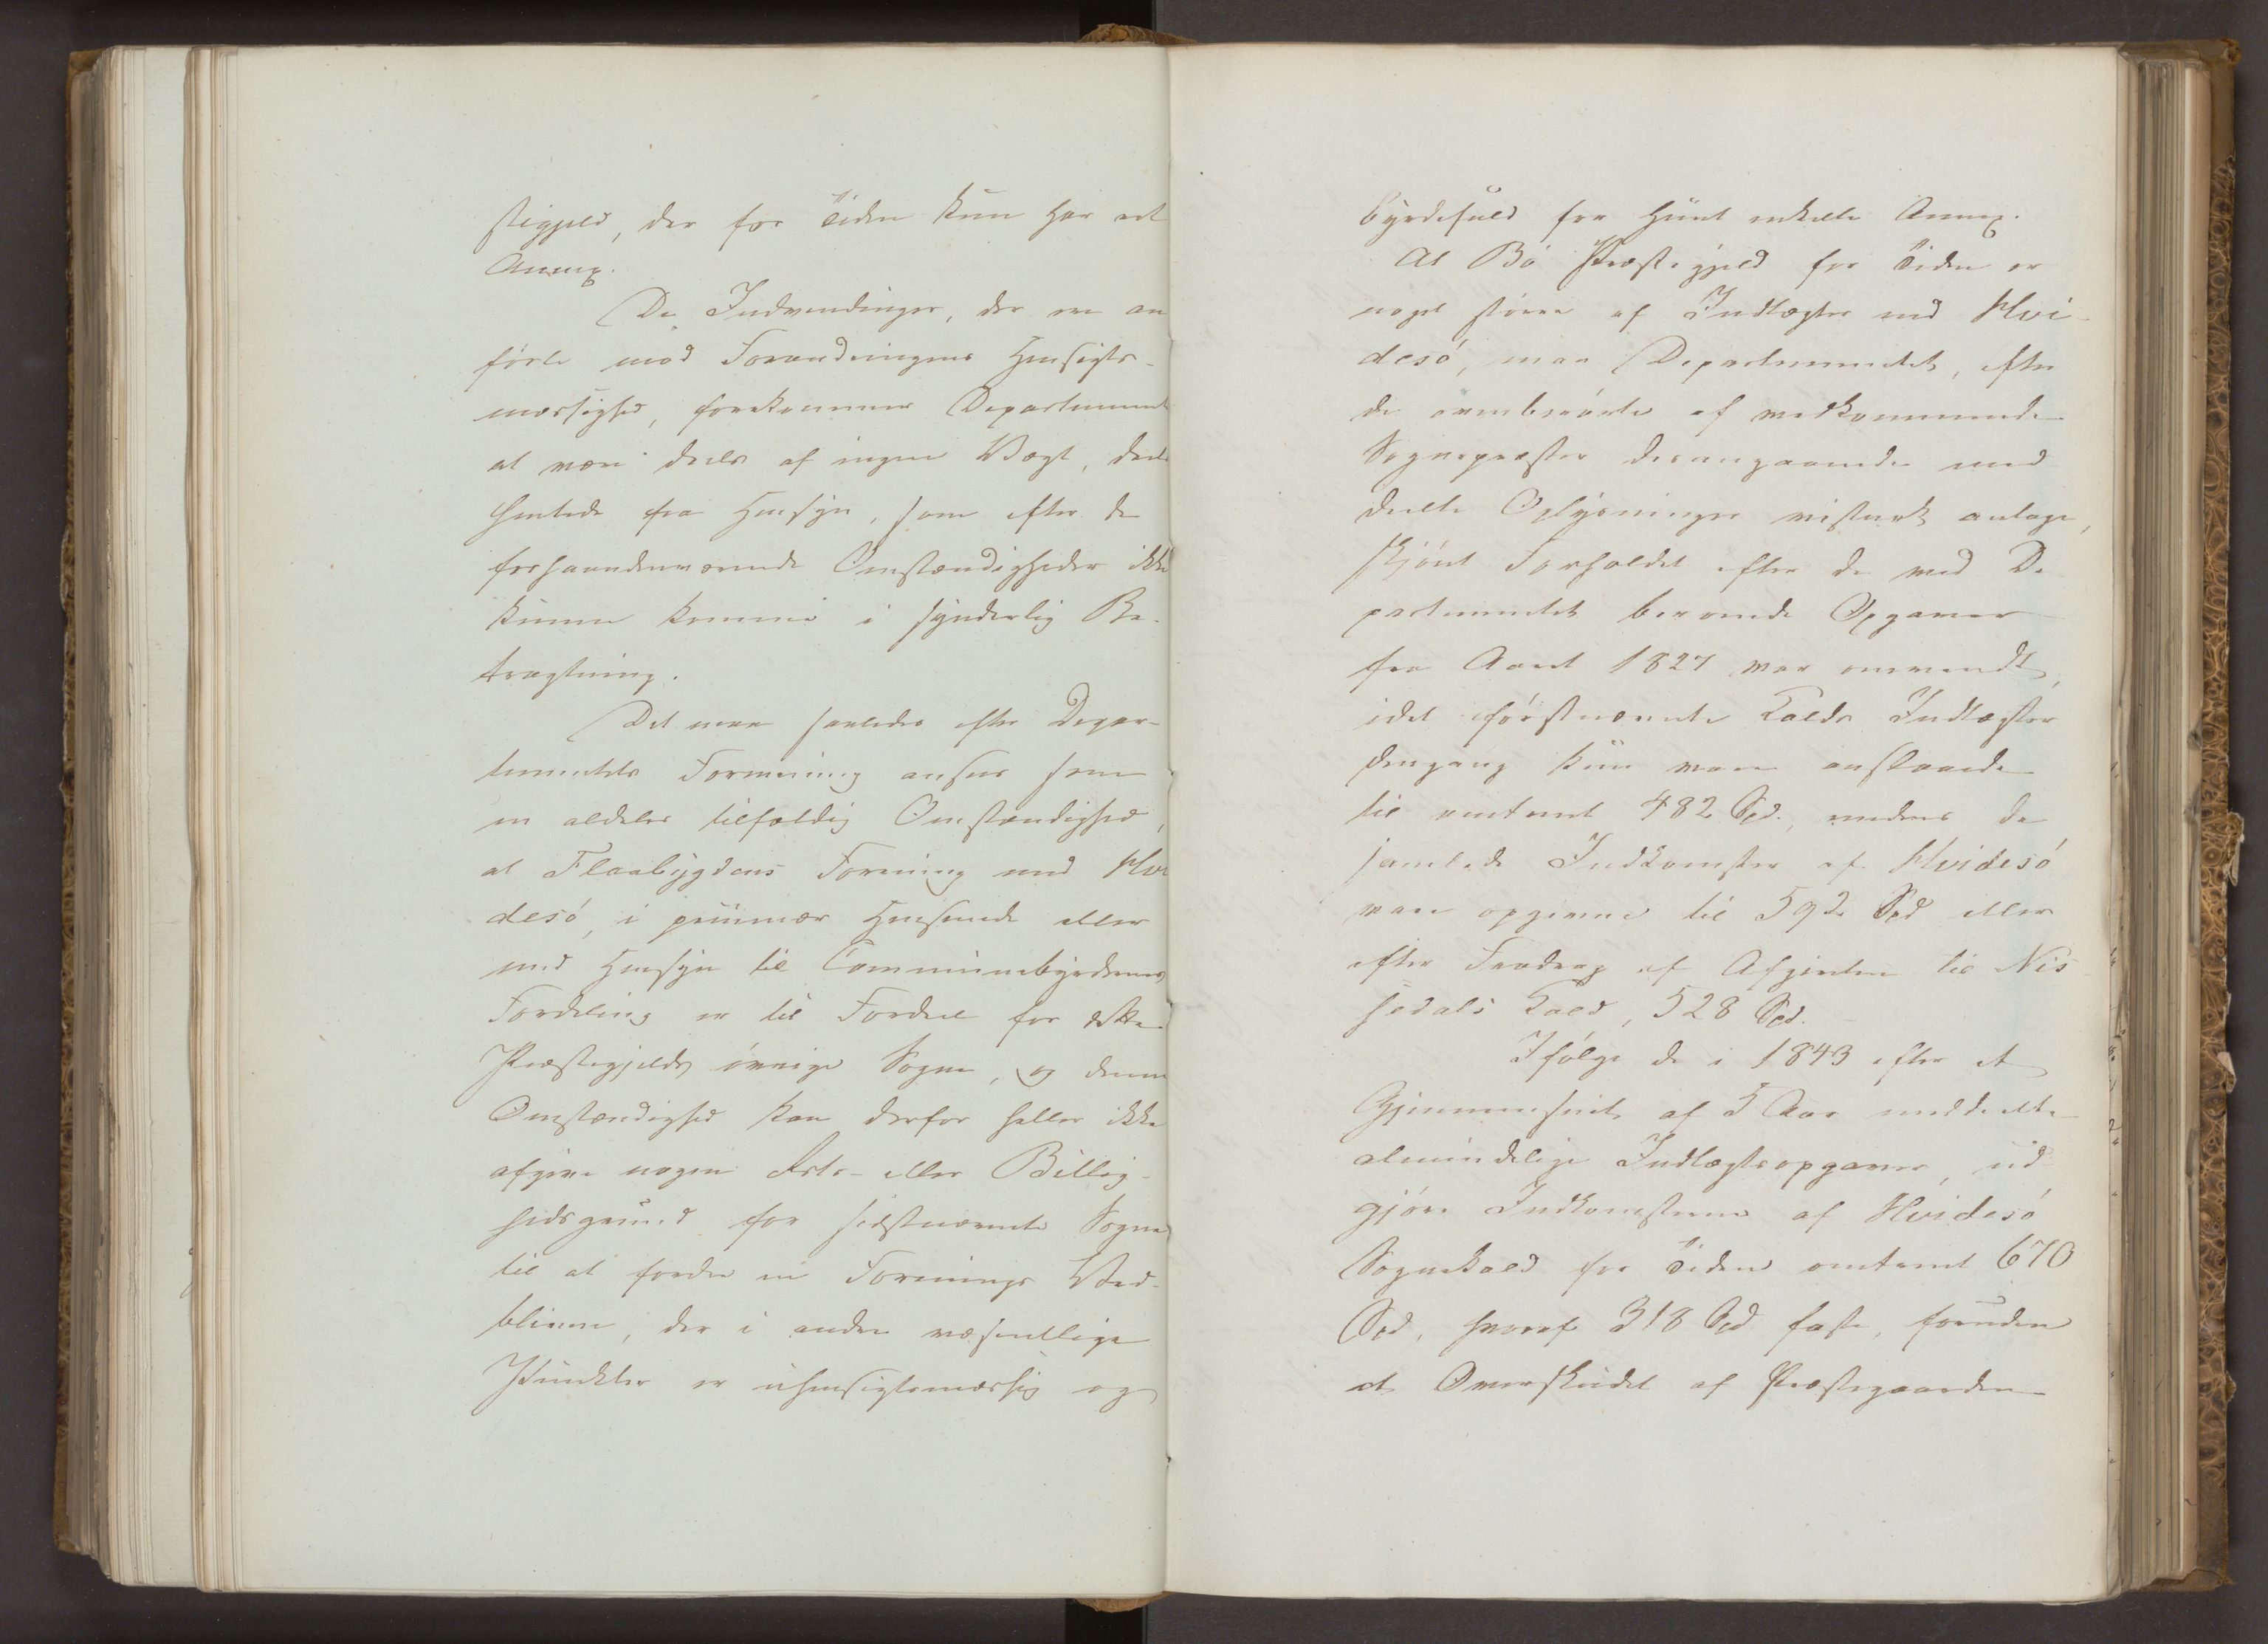 stigjeld, der for Tiden kun har eet
Annex.
De Indvendinger, der ere an
førte mod Forandringens Hensigts-
mæssighed, forekomme Departement
at være deels af ingen Vægt, deels
hentede fra Hensyn, som efter de
forhaandenværende Omstændigheder ikke
kunne komme i synderlig Be-
tragtning.
Det maa saaledes efter Depar-
tementets Formening ansees som
en aldeles tilfældig Omstændighed,
at Flaabygdens Forening med Hvi
desø, i pecuniær Henseende eller
med Hensyn til Communebyrdernes
Fordeling er til Fordeel for dette
Præstegjelds øvrige Sogne, og denne
Omstændighed kan derfor heller ikke
afgive nogen Rets- eller Billig-
hedsgrund for sidstnævnte Sogne
til at fordre en Forenings Ved-
bliven, der i andre væsentlige
Punkter er uhensigtsmæssig og
byrdefuld for hiint enkelte Annex.
At Bø Præstegjeld for Tiden er
noget større af Indtægter end Hvi-
desø, maa Departementet, efter
de ovenberørte af vedkommende
Sognepræster desangaaende med
deelte Oplysninger vistnok antage,
skjønt Forholdet efter de ved De
partementet beroende Opgaver
fra Aaret 1827 var omvendt,
idet førstnævnte Kalds Indtægter
dengang kun vare anslaaede
til omtrent 482 Spd., medens de
samlede Indkomster af Hvidesø
vare opgivne til 592 Spd eller
efter Fradrag af Afgivten til Nis
sedals Kald, 528 Spd.
Ifølge de i 1843 efter et
Gjennemsnit af 5 Aar meddeelte
almindelige Indtægtsopgaver, ud
gjøre Indkomsterne af Hvidesø
Sognekald for Tiden omtrent 670
Spd, hvoraf 318 Spd faste, foruden
et Overskudet af Præstegaarden